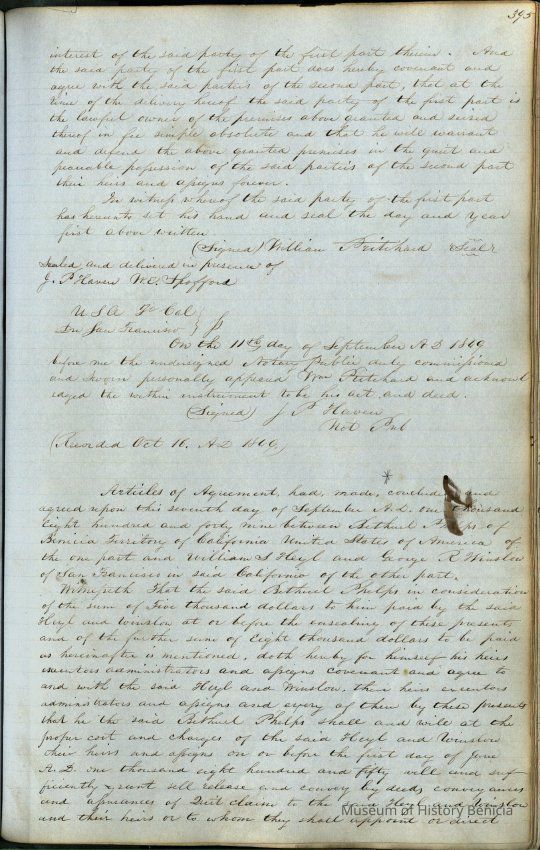 395
interest of the said party of the first part therein. And
the said party of the first part does hereby covenant and
agree with the said parties of the second part, that at the
time of the delivery hereof the said party of the first part is
the lawful owner of the premises above granted and seised
thereof in fee simple absolute and that he will warrant
and defend the above granted premises in the quiet and
peacable possession of the said parties of the second part
their heirs and assigns forever.
In witness whereof the said party of the first part
has hereunto set his hand and seal the day and year
first above written
(Signed) William Pritchard Seal
Sealed and delivered in presence of
J. P. Haven W. C. Spofford
U S A Cal
San Francisco
On the 11th day of September A D 1849
before me the undersigned Notary Public duly commissioned
and sworn personally appeared Wm Pritchard and acknowl
edged the within instrument to be his act and deed.
(Signed) J P Haven
Not Pub
(Recorded Oct 16. A D 1849)
*
Articles of Agreement, had, made, and
agreed upon this seventh day of September A.D. one thousand
Eight hundred and forty nine between Bethuel Phelps of
Benicia Territory of California United States of America of
the one part and William S Heyl and George R Winslow
of San Francisco in said California of the other part.
Witnesseth That the said Bethuel Phelps in consideration
of the sum of Five thousand dollars to him paid by the said
Heyl and Winslow at or before the ensealing of these presents
and of the further sum of Eight thousand dollars to be paid
as hereinafter is mentioned, doth hereby for himself his heirs
executors administrators and assigns covenant and agree to
and with the said Heyl and Winslow, their heirs executors
administrators and assigns and every of them by these presents
that he the said Bethuel Phelps shall and will at the
proper cost and charges of the said Heyl and Winslow
their heirs and assigns on or before the first day of June
A.D. one thousand eight hundred and fifty well and suf-
ficiently grant sell release and convey by deeds conveyances
and assurances of Quit claim to the said Heyl and Winslow
and their heirs or to whom they shall appoint or direct
Museum of History Benicia